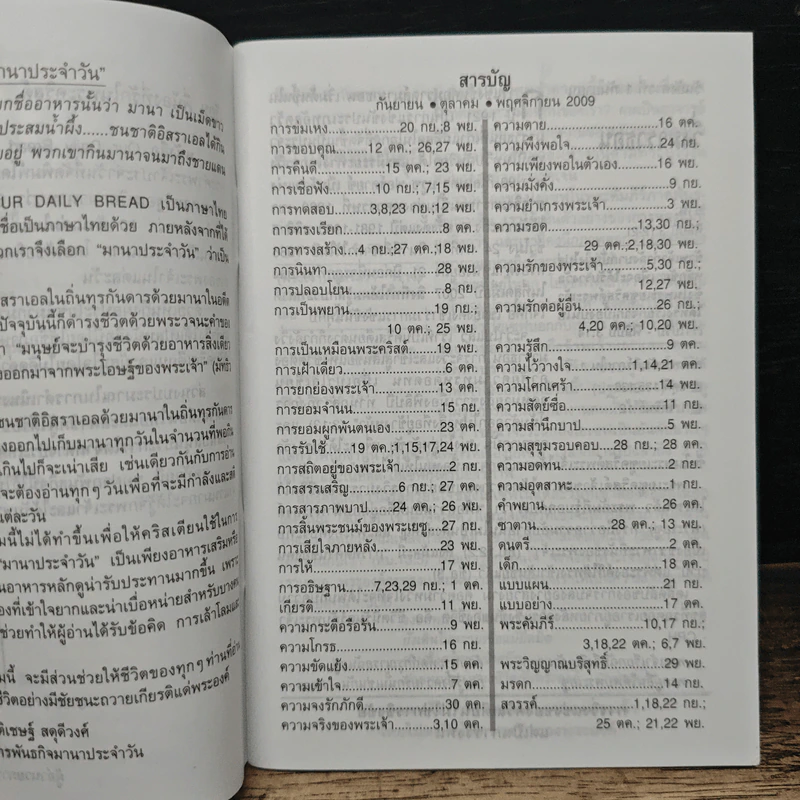 มานาประจำวัน"
กชื่ออาหารนั้นว่า มานา เป็นเม็ดขาว
ประสมน้ำผึ้ง......ชนชาติอิสราเอลได้กิน
อยู่ พวกเขากินมานาจนมาถึงชายแดน
UR DAILY BREAD เป็นภาษาไทย
ชื่อเป็นภาษาไทยด้วย ภายหลังจากที่ได้
วกเราจึงเลือก "มานาประจำวัน" ว่าเป็น
อิสราเอลในถิ่นทุรกันดารด้วยมานาในอดีต
ปัจจุบันนี้ก็ดำรงชีวิตด้วยพระวจนะคำของ
า "มนุษย์จะบำรุงชีวิตด้วยอาหารสิ่งเดียว
งออกมาจากพระโอษฐ์ของพระเจ้า" (มัทธิว
ชนชาติอิสราเอลด้วยมานาในถิ่นทุรกันดาร
งออกไปเก็บมานาทุกวันในจำนวนที่พอกิน
เกินไปก็จะเน่าเสีย เช่นเดียวกันกับการอ่าน
จะต้องอ่านทุกๆ วันเพื่อที่จะมีกำลังและสติ
แต่ละวัน
มนี้ไม่ได้ทำขึ้นเพื่อให้คริสเตียนใช้ในการ
"มานาประจำวัน" เป็นเพียงอาหารเสริมหรือ
นอาหารหลักดูน่ารับประทานมากขึ้น เพราะ
องที่เข้าใจยากและน่าเบื่อหน่ายสำหรับบางคน
ช่วยทำให้ผู้อ่านได้รับข้อคิด การเล้าโลมและ
มนี้ จะมีส่วนช่วยให้ชีวิตของทุกๆ ท่านที่อ่าน
ชีวิตอย่างมีชัยชนะถวายเกียรติแด่พระองค์
ดิเชษฐ์ สดุดีวงศ์
ารพันธกิจมานาประจำวัน
สารบัญ
กันยายน ● ตุลาคม ● พฤศจิกายน 2009
การข่มเหง....................20 กย.;8 พย.
การขอบคุณ.............12 ตค.; 26,27 พย.
การคืนดี....................15 ตค.; 23 พย.
การเชื่อฟัง.............10 กย.; 7,15 พย.
การทดสอบ.........3,8,23 กย.;12 พย.
การทรงเรียก.........................8 ตค.
การทรงสร้าง....4 กย.;27 ตค.;18 พย.
การนินทา...........................28 พย.
การปลอบโยน.........................8 กย.
การเป็นพยาน....................19 กย.;
10 ตค.; 25 พย.
การเป็นเหมือนพระคริสต์........19 พย.
การเฝ้าเดี่ยว.........................6 ตค.
การยกย่องพระเจ้า...............13 ตค.
การยอมจำนน......................15 กย.
การยอมผูกพันตนเอง...........23 ตค.
การรับใช้.......19 ตค.;1,15,17,24 พย.
การสถิตอยู่ของพระเจ้า............2 กย.
การสรรเสริญ............6 กย.; 27 ตค.
การสารภาพบาป......24 ตค.; 26 พย.
การสิ้นพระชนม์ของพระเยซู....27 กย.
การเสียใจภายหลัง...............23 พย.
การให้.................................17 พย.
การอธิษฐาน.......7,23,29 กย.; 1 ตค.
เกียรติ.................................11 พย.
ความกระตือรือร้น...................9 พย.
ความโกรธ...........................16 กย.
ความขัดแย้ง........................15 ตค.
ความเข้าใจ............................7 ตค.
ความจงรักภักดี....................30 ตค.
ความจริงของพระเจ้า...........3,10 ตค.
ความตาย............................16 ตค.
ความพึงพอใจ......................24 กย.
ความเพียงพอในตัวเอง.........16 พย.
ความมั่งคั่ง...........................9 กย.
ความยำเกรงพระเจ้า...............3 พย.
ความรอด.......................13,30 กย.;
29 ตค.;2,18,30 พย.
ความรักของพระเจ้า..........5,30 กย.;
12,27 พย.
ความรักต่อผู้อื่น..................26 กย.;
4,20 ตค.; 10,20 พย.
ความรู้สึก..............................9 ตค.
ความไว้วางใจ................1,14,21 ตค.
ความโศกเศร้า.....................14 พย.
ความสัตย์ซื่อ.......................11 กย.
ความสำนึกบาป.....................5 พย.
ความสุขุมรอบคอบ...28 กย.; 28 ตค.
ความอดทน...........................2 กย.
ความอุตสาหะ........................1 กย.
คำพยาน..............................26 ตค.
ซาตาน....................28 ตค.; 13 พย.
ดนตรี....................................2 ตค.
เด็ก.....................................18 ตค.
แบบแผน..............................21 กย.
แบบอย่าง.............................17 ตค.
พระคัมภีร์.......................10,17 กย.;
3,18,22 ตค.; 6,7 พย.
พระวิญญาณบริสุทธิ์.............29 พย.
มรดก..................................14 กย.
สวรรค์...........................1,18,22 กย.;
25 ตค.; 21,22 พย.